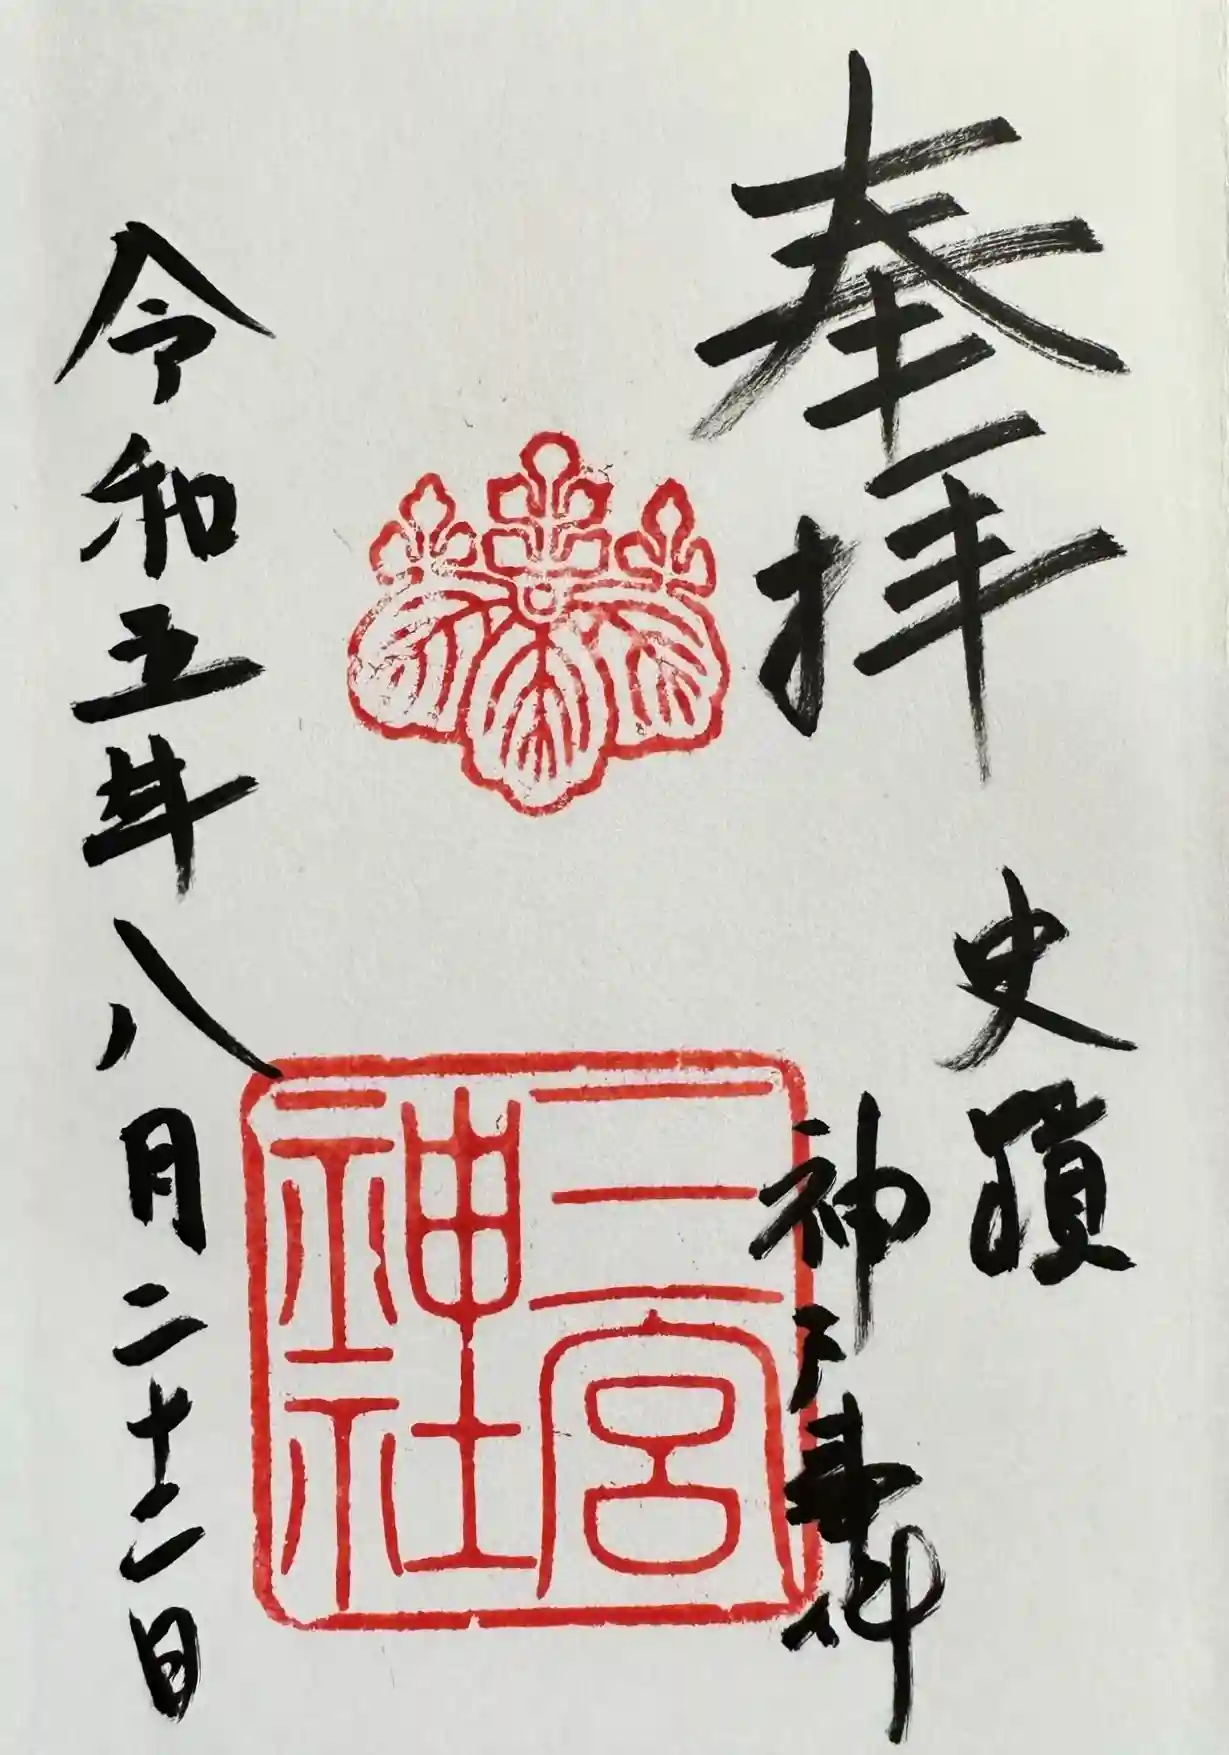 奉拝
史蹟
神戸事件
三宮
神社
令和五年八月二十二日